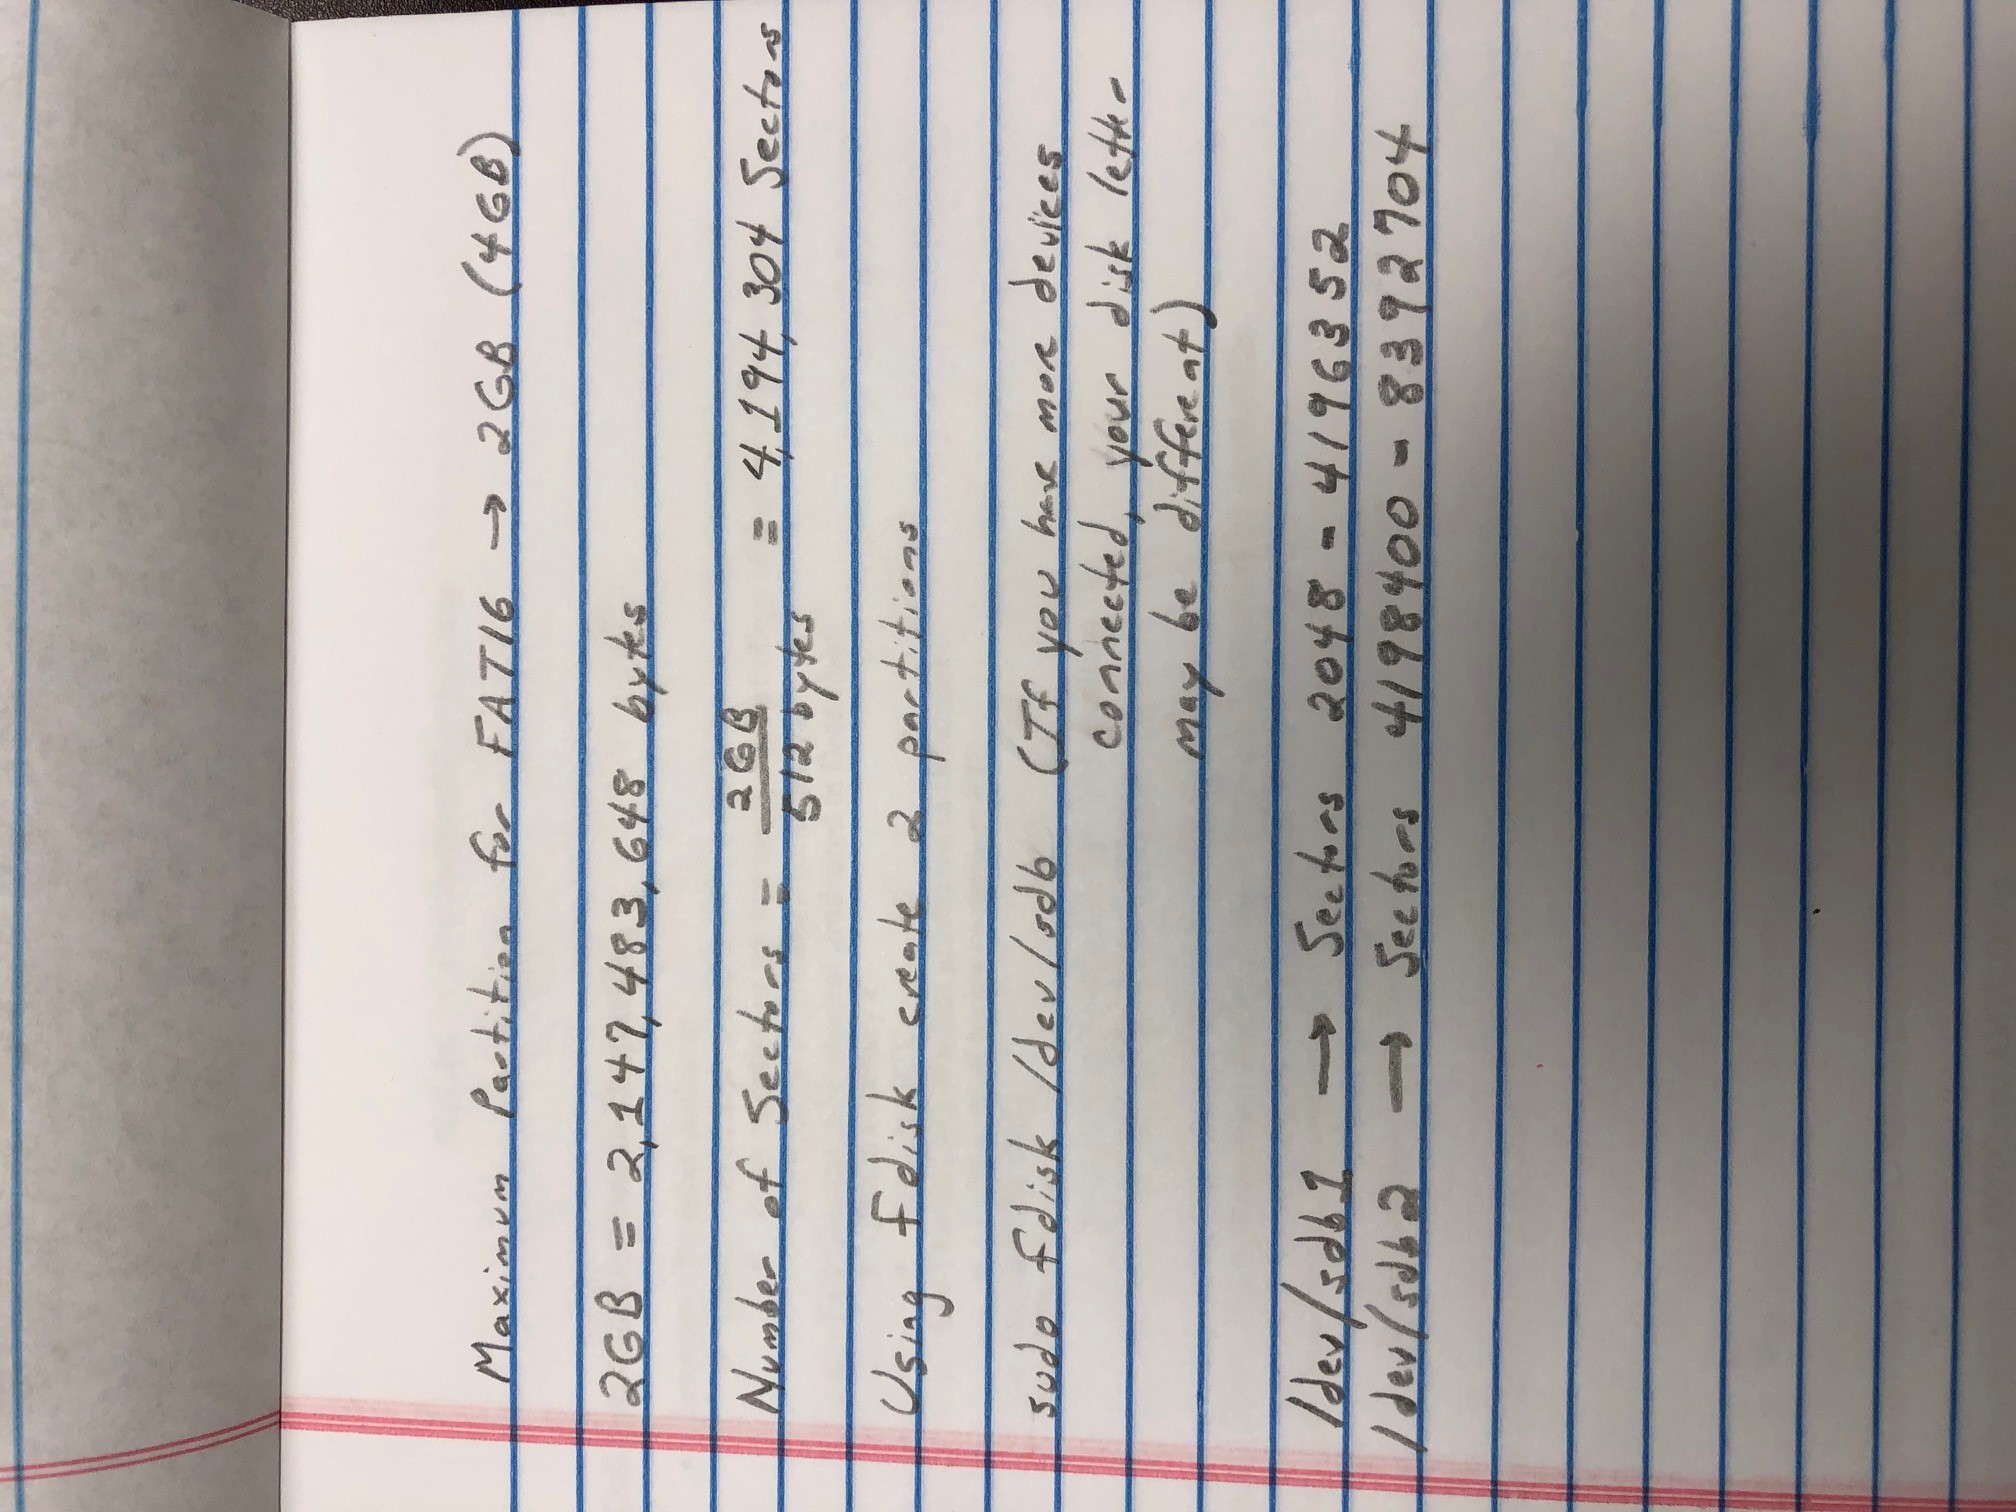 Maximum Partition for FAT16 → 2GB (4GB)
2GB = 2,147,483,648 bytes
Number of Sectors = 2GB / 512 bytes = 4,194,304 Sectors
Using fdisk create 2 partitions
sudo fdisk /dev/sdb (If you have more devices
connected, your disk letter
may be different)
/dev/sdb1 → Sectors 2048 - 4196352
/dev/sdb2 → Sectors 4198400 - 8392704